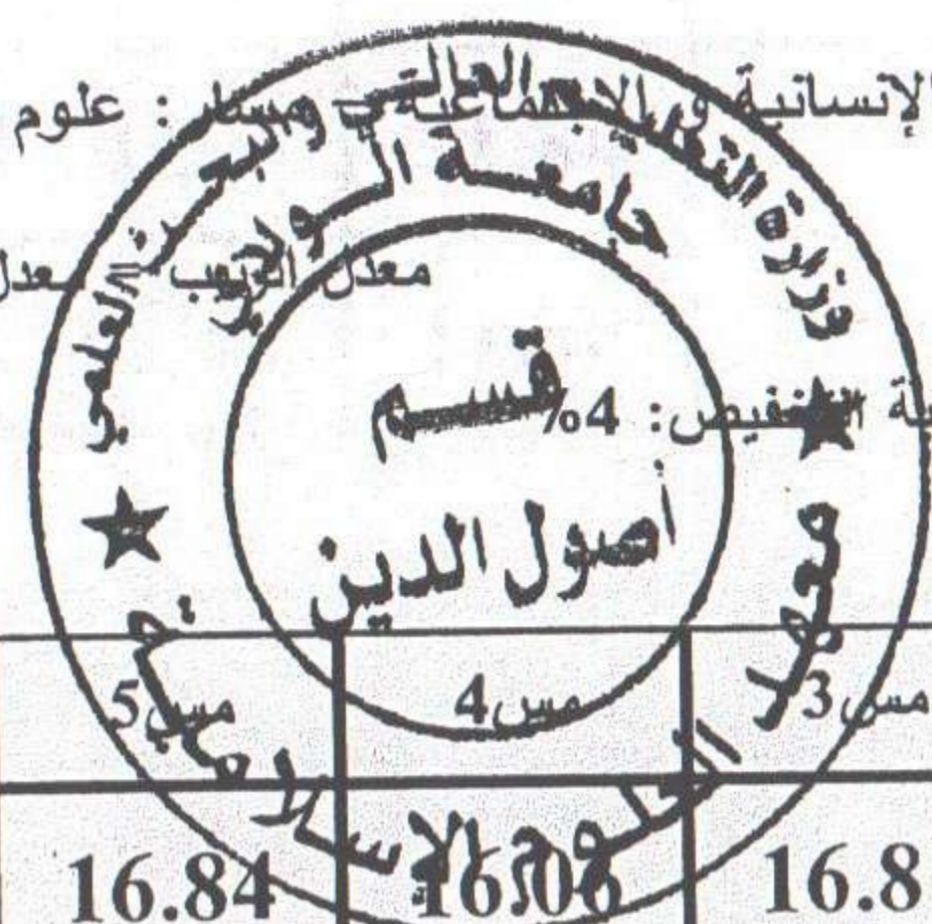 الإنسانية و الإجتماعية - ومسار: علوم
معدل الترتيب = معدل
التخفيض: 4%
وزارة التعليم العالي والبحث العلمي
جامعة الوادي
قسم
أصول الدين
معهد العلوم الإسلامية
مس3 مس4 مس5
16.8 16.06 16.84